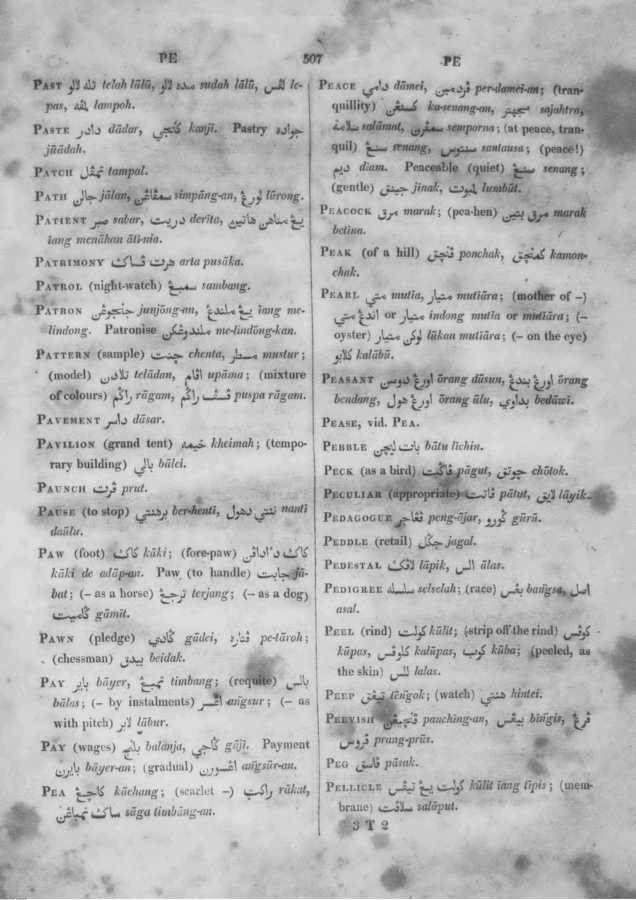 PE 507 PE
PAST تله لالو telah lālū, سده لالو sudah lālū, لڤس le-
pas, لمڤه lampoh.
PASTE دادر dādar, كنجي kanji. Pastry جواده
jūādah.
PATCH تمڤل tampal.
PATH جالن jālan, سمڤاڠن simpāng-an, لورڠ lūrong.
PATIENT صبر sabar, دريت derīta, يڠ مناهن هاتين
īang menāhan āti-nia.
PATRIMONY هرت ڤساك arta pusāka.
PATROL (night-watch) سمبڠ sambang.
PATRON جنجوڠن junjōng-an, يڠ ملندڠ īang me-
lindong. Patronise ملندوڠكن me-lindōng-kan.
PATTERN (sample) چنت chenta, مسطر mustur;
(model) تلادن telādan, اڤام upāma; (mixture
of colours) راڬم rāgam, ڤسڤ راڬم puspa rāgam.
PAVEMENT داسر dāsar.
PAVILION (grand tent) خيمه kheimah; (tempo-
rary building) بالي bālei.
PAUNCH ڤرت prut.
PAUSE (to stop) برهنتي ber-henti, ننتي دهول nanti
daūlu.
PAW (foot) كاك kāki; (fore-paw) كاك د اداڤن
kāki de adāp-an. Paw (to handle) جابت jā-
bat; (– as a horse) ترجڠ terjang; (– as a dog)
ڬاميت gāmit.
PAWN (pledge) ڬادي gādei, ڤتاره pe-tāroh;
(chessman) بيدق beidak.
PAY باير bāyer, تمبڠ timbang; (requite) بالس
bālas; (– by instalments) اڠسر angsur; (– as
with pitch) لابر lābur.
PAY (wages) بلنج balanja, ڬاجي gājī. Payment
بايرن bāyer-an; (gradual) اڠسورن angsūr-an.
PEA كاچڠ kāchang; (scarlet –) راكت rākat,
ساݢ تمباڠن sāga timbāng-an.
PEACE دامي dāmei, ڤردمين per-damei-an; (tran-
quillity) كسنڠن ka-senang-an, سجهتر sajahtra,
سلامة salāmat, سمڤرن semporna; (at peace, tran-
quil) سنڠ senang, سنتوس santausa; (peace!)
ديم diam. Peaceable (quiet) سنڠ senang;
(gentle) جينق jinak, لمبوت lumbūt.
PEACOCK مرق marak; (pea-hen) مرق بتين marak
betina.
PEAK (of a hill) ڤنچق ponchak, كمنچق kamon-
chak.
PEARL متي mutia, متيار mutiāra; (mother of –)
اندڠ متي or متيار indong mutia or mutiāra; (–
oyster) لوكن متيار lūkan mutiāra; (– on the eye)
كلابو kalābū.
PEASANT اورڠ دوسن ōrang dūsun, اورڠ بندڠ ōrang
bendang, اورڠ هول ōrang ūlu, بداوي bedāwī.
PEASE, vid. PEA.
PEBBLE بات ليچن bātu līchin.
PECK (as a bird) ڤاڬت pāgut, چوتق chōtok.
PECULIAR (appropriate) ڤاتت pātut, لايق lāyik.
PEDAGOGUE ڤڠاجر peng-ājar, ڬورو gūrū.
PEDDLE (retail) جڬل jagal.
PEDESTAL لاڤك lāpik, الس ālas.
PEDIGREE سلسله selselah; (race) بڠس bangsa, اصل
asal.
PEEL (rind) كولت kūlit; (strip off the rind) كوڤس
kūpas, كلوڤس kalūpas, كوب kūba; (peeled, as
the skin) لالس lalas.
PEEP تيڠق tēngok; (watch) هنتي hintei.
PEEVISH ڤنچيڠن panching-an, بيڠس bīngis, ڤرڠ
ڤروس prang-prūs.
PEG ڤاسق pāsak.
PELLICLE كولت يڠ تيڤس kūlit īang tīpis; (mem-
brane) سلاڤت salāput.
3 T 2